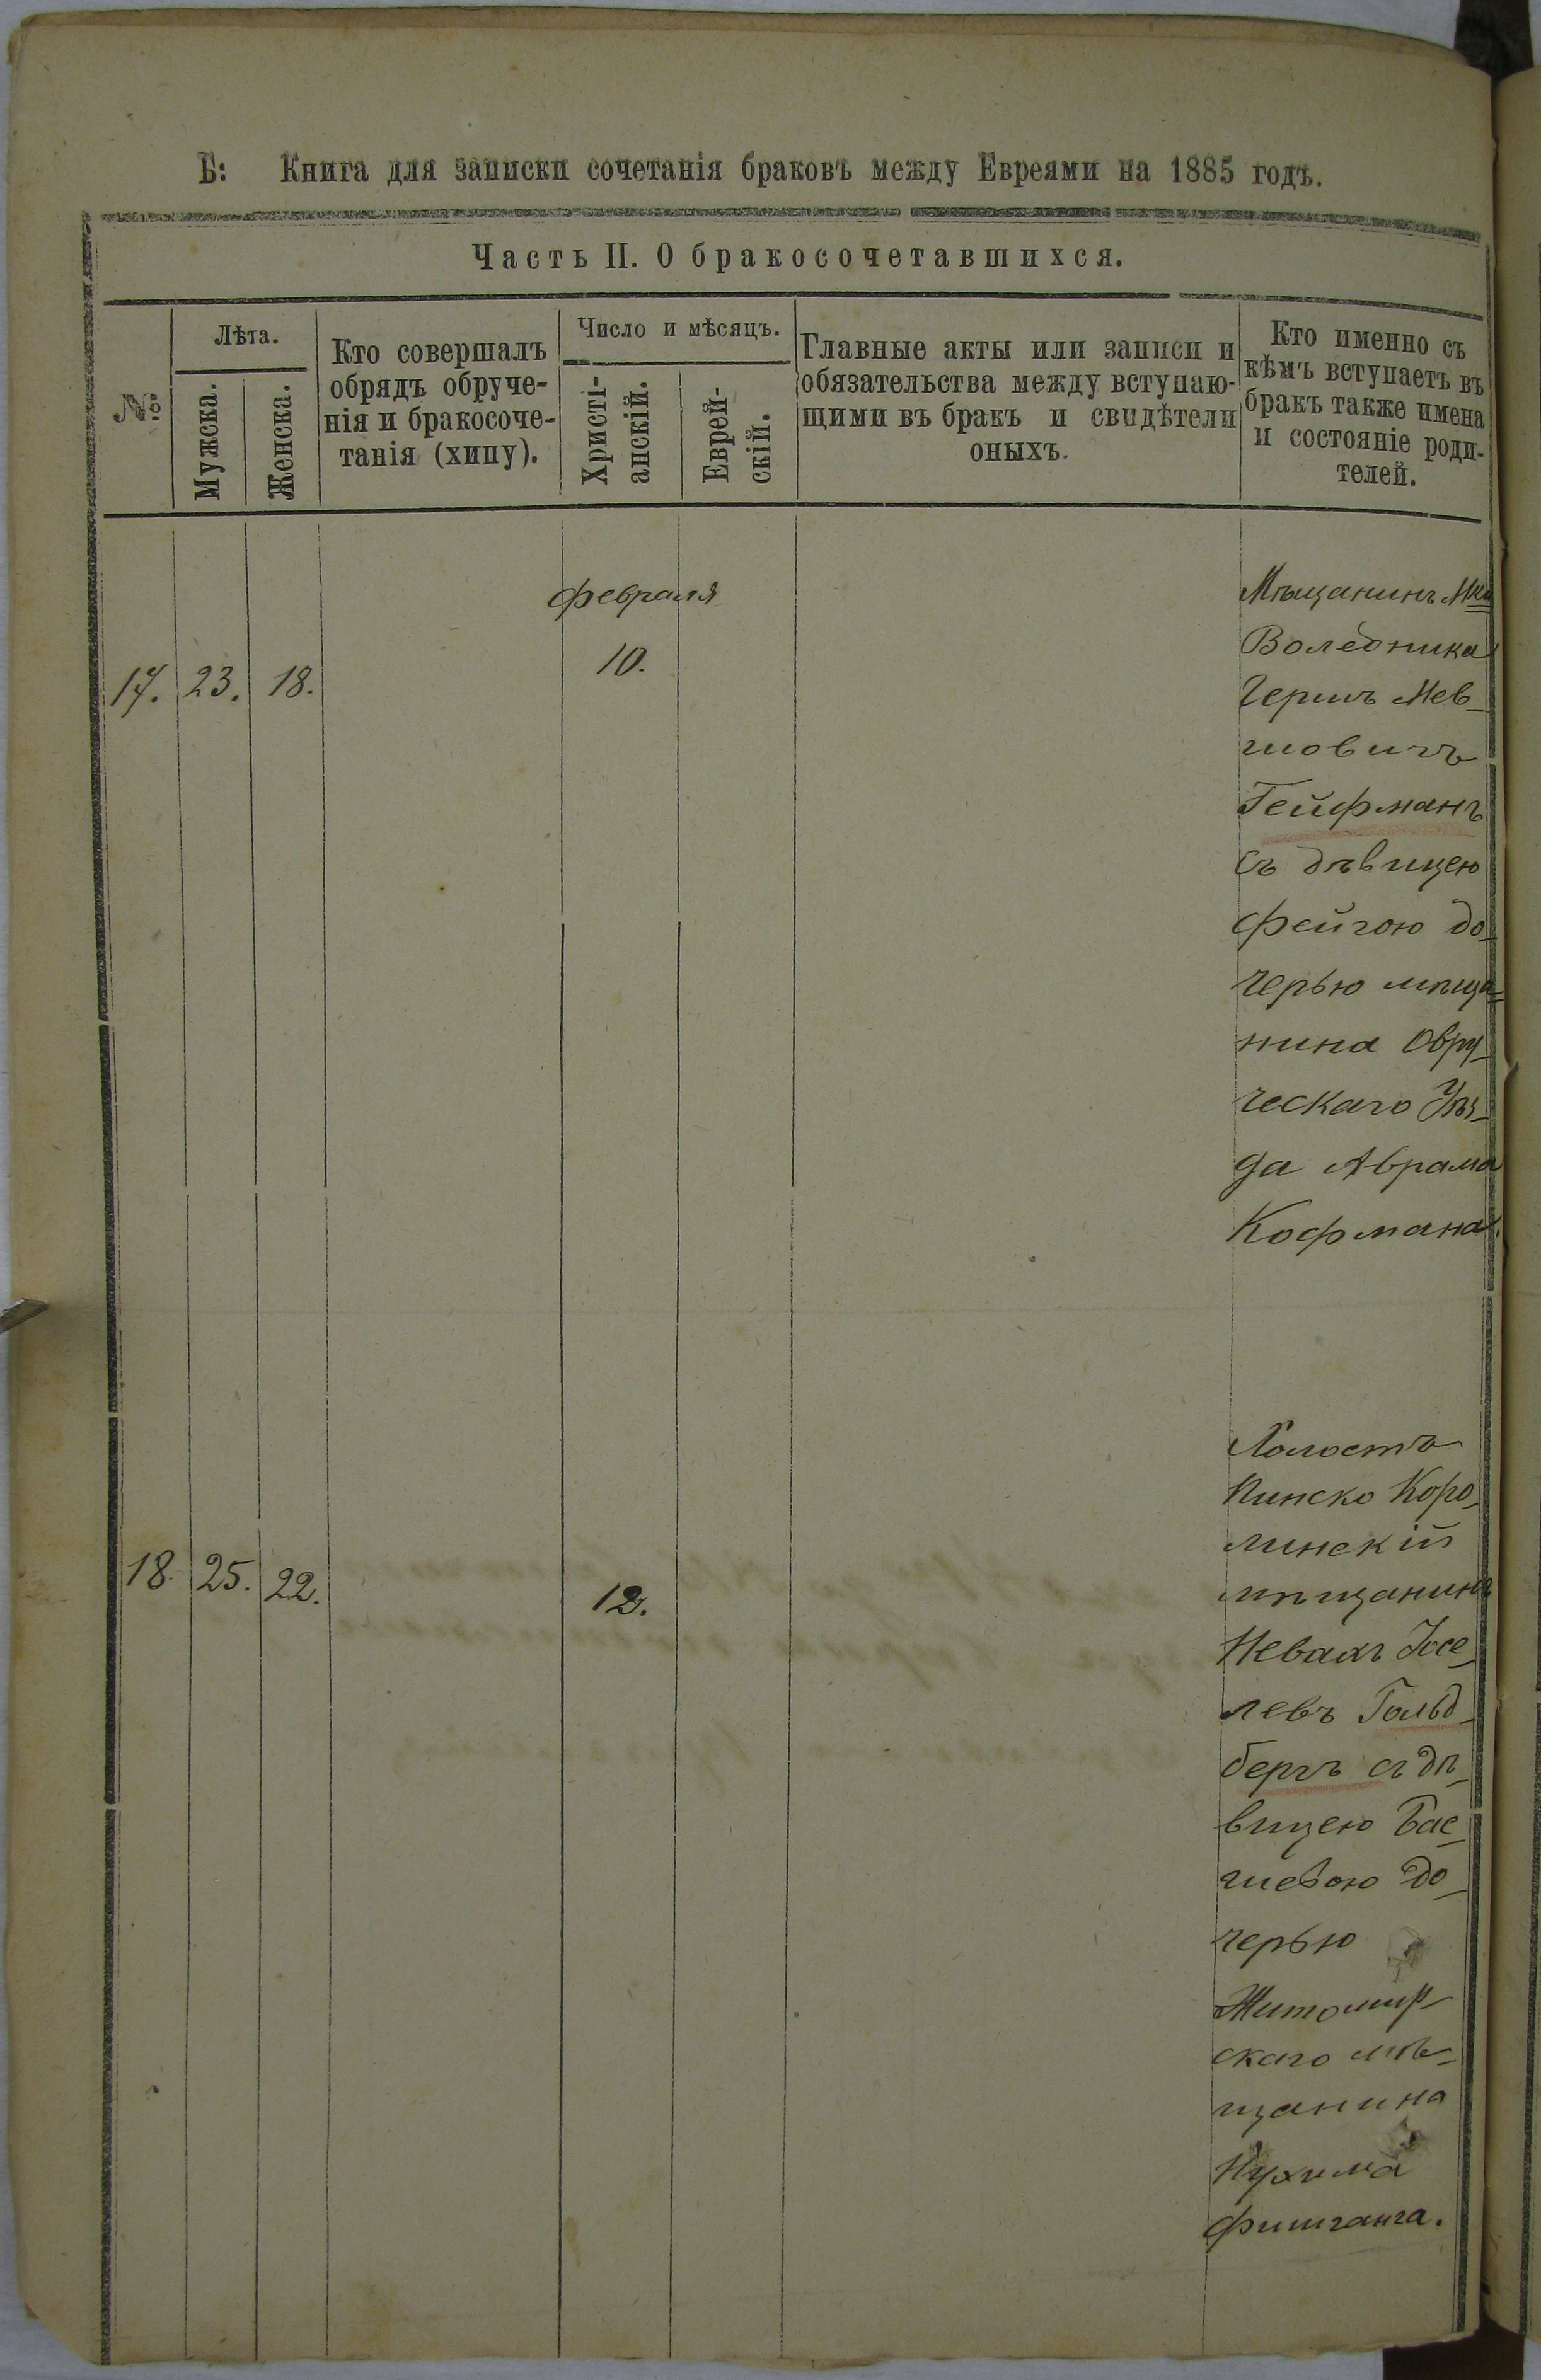 Б: Книга для записки сочетанія браковъ между Евреями на 1885 годъ.
Часть II. О бракосочетавшихся.
№
Лѣта.
Мужска.
Женска.
Кто совершалъ
обрядъ обруче-
нія и бракосоче-
танія (хипу).
Число и мѣсяцъ.
Христі-
анскій.
Еврей-
скій.
Главные акты или записи и
обязательства между вступаю-
щими въ бракъ и свидѣтели
оныхъ.
Кто именно съ
кѣмъ вступаетъ въ
бракъ также имена
и состояніе роди-
телей.
17. 23. 18.
февраля
10.
Мѣщанинъ
Воледника
Гершъ Лев-
шовичъ
Гейфманъ
съ дѣвицею
Фейгою до-
черью мѣща-
нина Овру-
ческаго Уѣз-
да Аврама
Кофмана.
18. 25. 22.
12.
Холостъ
Пинско Каро-
линскій
мѣщанинъ
Невахъ Іосе-
левъ Гольд-
бергъ съ дѣ-
вицею Бас-
шевою до-
черью
Житомир-
скаго мѣ-
щанина
Нухима
Фишганга.